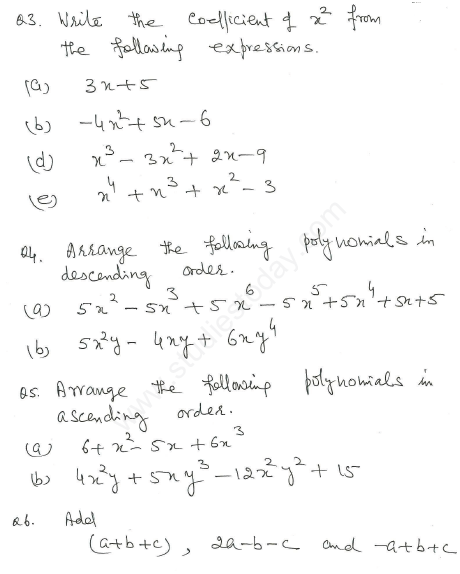 Q3. Write the coefficient of x² from
the following expressions.
(a) 3x+5
(b) -4x²+5x-6
(d) x³-3x²+2x-9
(e) x⁴+x³+x²-3
Q4. Arrange the following polynomials in
descending order.
(a) 5x²-5x³+5x⁶-5x⁵+5x⁴+5x+5
(b) 5x²y-4xy+6xy⁴
Q5. Arrange the following polynomials in
ascending order.
(a) 6+x²-5x+6x³
(b) 4x²y+5xy³-12x²y²+15
Q6. Add
(a+b+c), 2a-b-c and -a+b+c
www.studiestoday.com